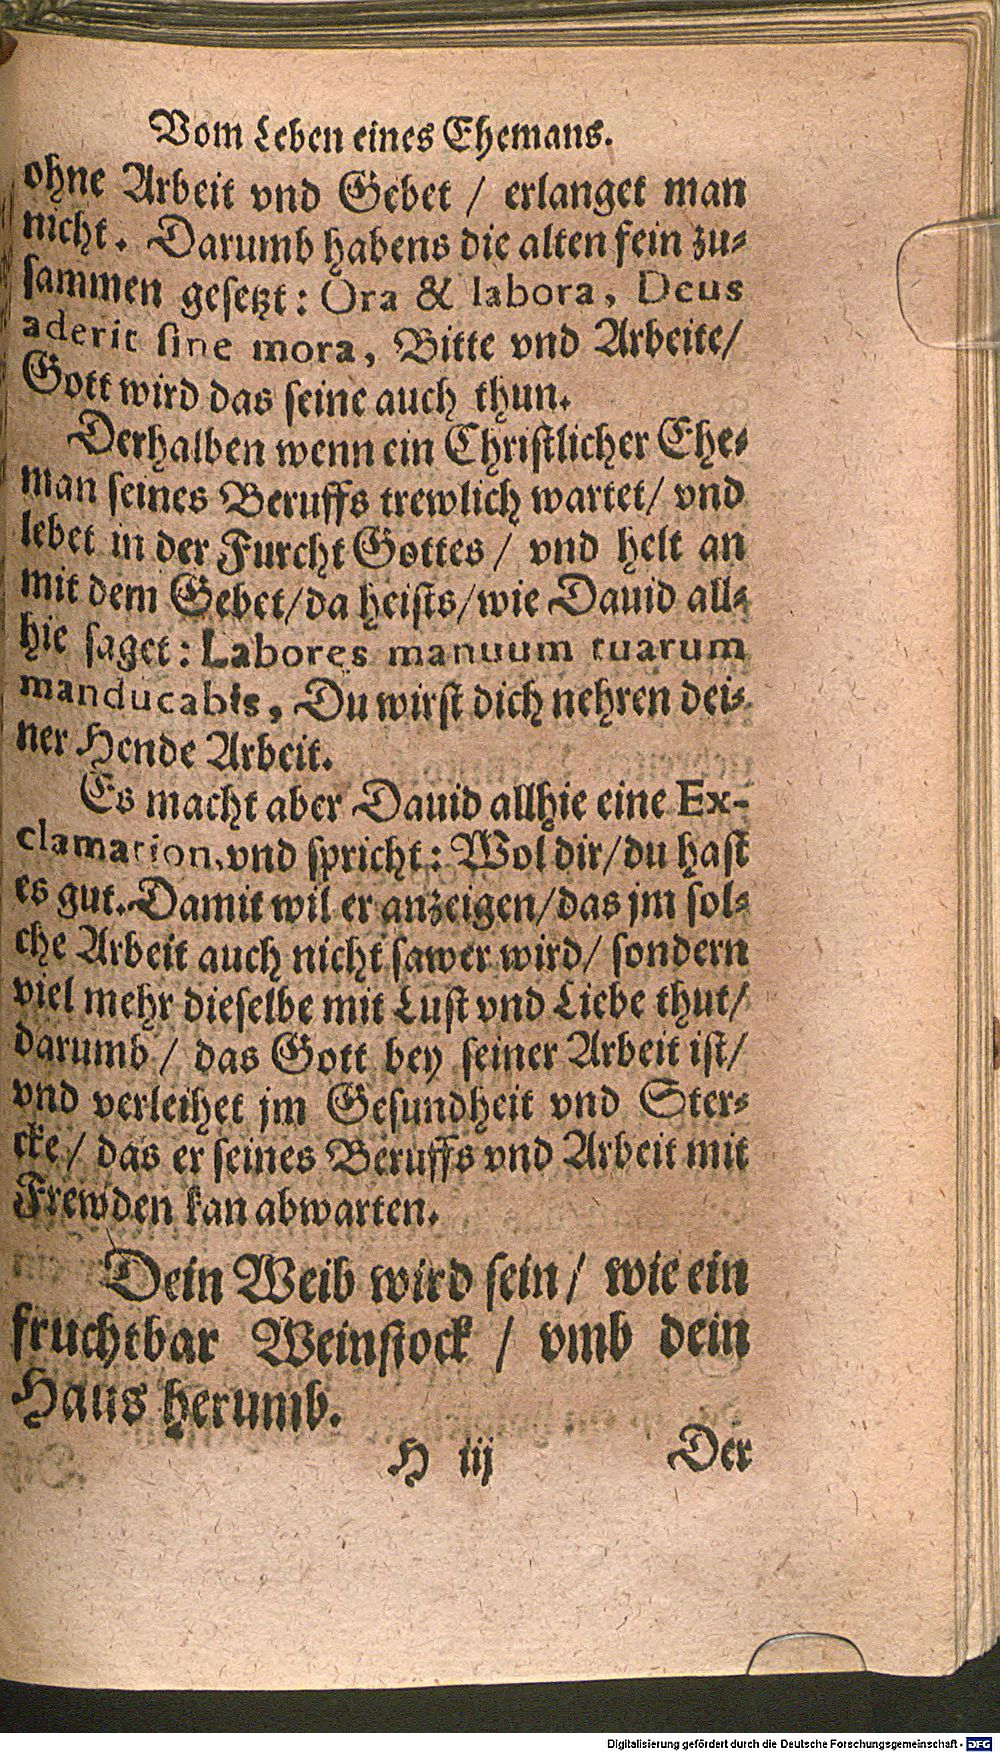 Vom Leben eines Ehemans.
ohne Arbeit vnd Gebet / erlanget man
nicht. Darumb habens die alten fein zu-
sammen gesetzt: Ora & labora, Deus
aderit sine mora, Bitte vnd Arbeite/
Gott wird das seine auch thun.
Derhalben wenn ein Christlicher Ehe-
man seines Beruffs trewlich wartet/ vnd
lebet in der Furcht Gottes / vnd helt an
mit dem Gebet/da heists/wie Dauid all-
hie saget: Labores manuum tuarum
manducabis, Du wirst dich nehren dei-
ner Hende Arbeit.
Es macht aber Dauid allhie eine Ex-
clamation, vnd spricht: Wol dir/du hast
es gut. Damit wil er anzeigen/das jm sol-
che Arbeit auch nicht sawer wird/ sondern
viel mehr dieselbe mit Lust vnd Liebe thut/
darumb / das Gott bey seiner Arbeit ist/
vnd verleihet jm Gesundheit vnd Ster-
cke/ das er seines Beruffs vnd Arbeit mit
Frewden kan abwarten.
Dein Weib wird sein/ wie ein
fruchtbar Weinstock / vmb dein
Haus herumb.
H iij Der
Digitalisierung gefördert durch die Deutsche Forschungsgemeinschaft - DFG